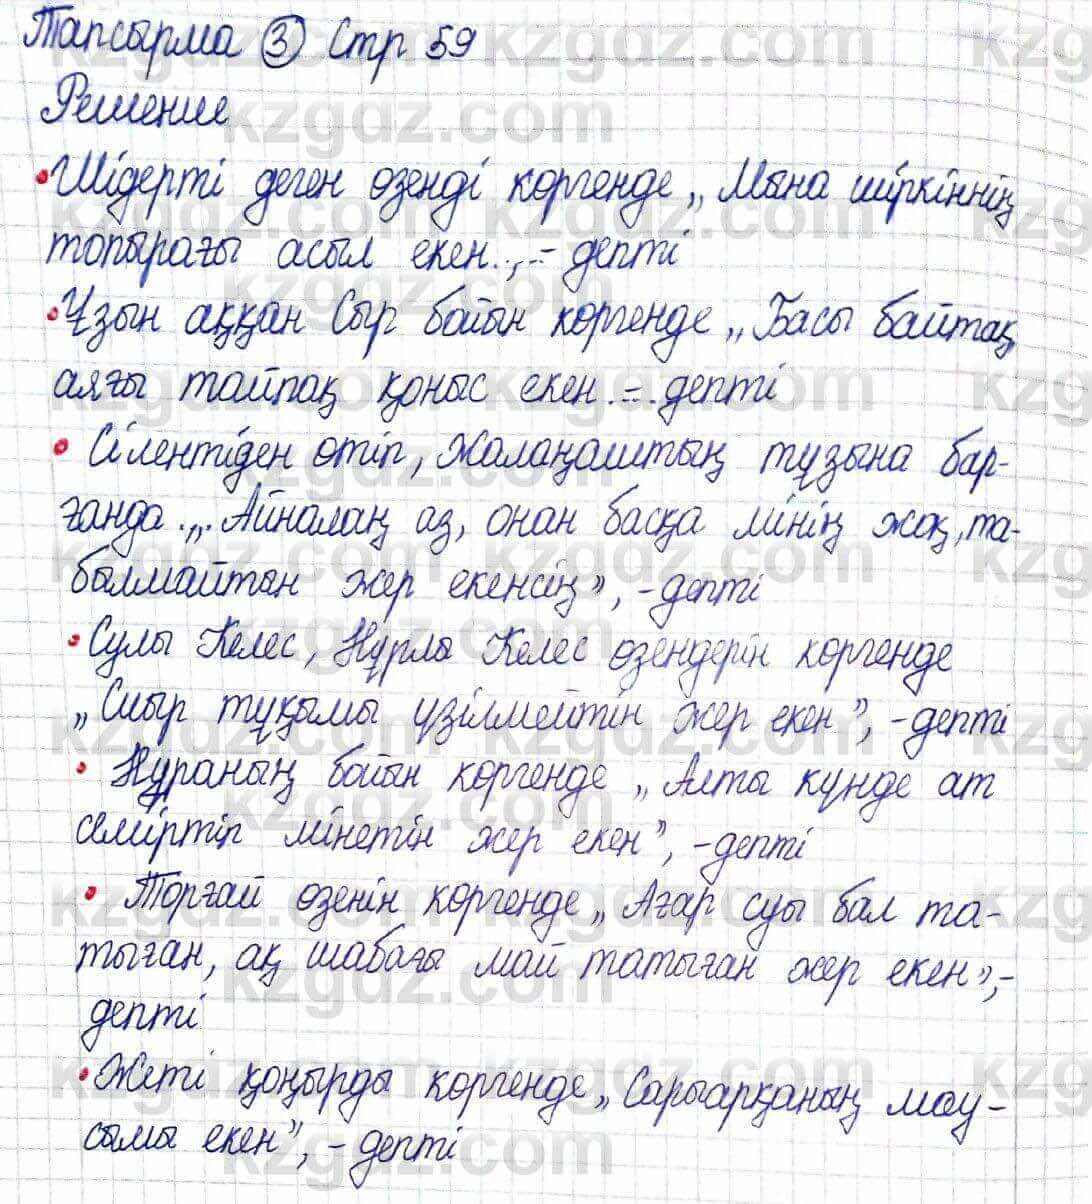 Тапсырма ③ Стр 59
Решение
• Шідерті деген өзенді көргенде „Мына шіркіннің
топырағы асыл екен.„ - депті
• Ұзын аққан Сыр бойын көргенде „Басы байтақ,
аяғы тайпақ қоныс екен. - депті
• Сілентіден өтіп, Жалаңаштың тұзына бар-
ғанда.„ Айналаң аз, онан басқа мінің жоқ, та-
былмайтын жер екенсің”, - депті
• Сулы Келес, Нұрлы Келес өзендерін көргенде
„Сиыр тұқымы үзілмейтін жер екен”, - депті
• Нұраның бойын көргенде „Алты күнде ат
семіртіп мінетін жер екен”, - депті
• Торғай өзенін көргенде „Ағар суы бал та-
тыған, ақ шабағы май татыған жер екен”, -
депті
• Жеті қоңырды көргенде „Сарыарқаның мау-
сымы екен”, - депті